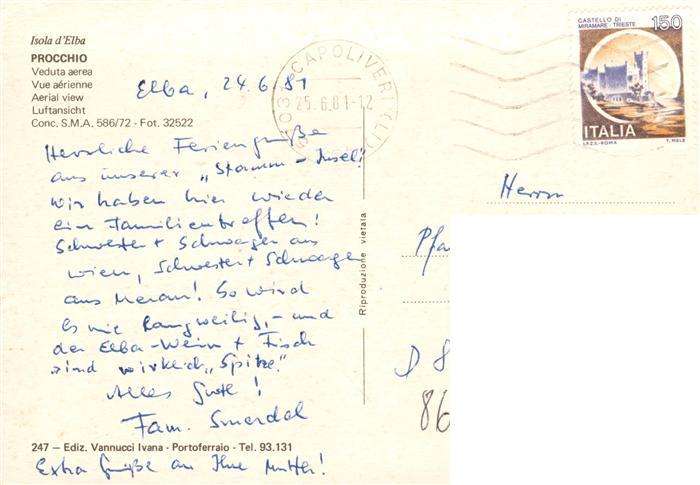 Isola d'Elba
PROCCHIO
Veduta aerea
Vue aérienne
Aerial view
Luftansicht
Conc. S.M.A. 586/72 - Fot. 32522
Elba, 24.6.81
Herzliche Feriengrüße
aus unserer „Stamm-Insel".
Wir haben hier wieder
ein Familientreffen!
Schwester + Schwager aus
Wien, Schwester + Schwager
aus Meran! So wird
es nie langweilig, - und
der Elba-Wein + Fisch
sind wirklich „Spitze."
Alles Gute!
Fam.
247 — Ediz. Vannucci Ivana - Portoferraio - Tel. 93.131
Extra Grüße an Ihre Mutter!
Riproduzione vietata
CAPOLIVERI (LI)
25.6.81-12
CASTELLO DI
MIRAMARE - TRIESTE
150
ITALIA
I.P.Z.S.-ROMA T. MELE
Herrn
Pfa
D 8
86